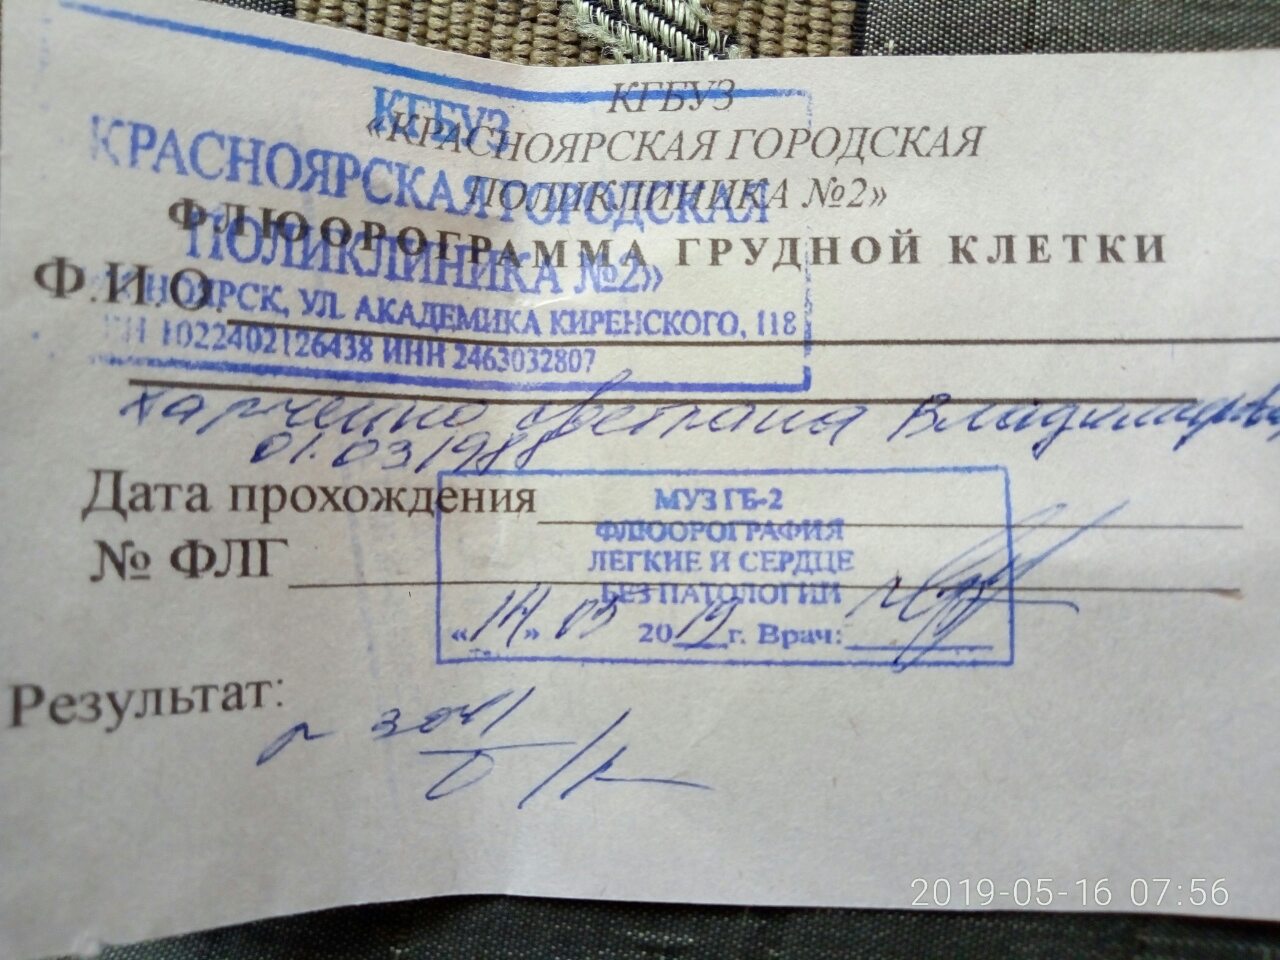 КГБУЗ
«КРАСНОЯРСКАЯ ГОРОДСКАЯ
ПОЛИКЛИНИКА №2»
КГБУЗ
КРАСНОЯРСКАЯ ГОРОДСКАЯ
ПОЛИКЛИНИКА №2»
НОЯРСК, УЛ. АКАДЕМИКА КИРЕНСКОГО, 118
1022402126438 ИНН 2463032807
ФЛЮОРОГРАММА ГРУДНОЙ КЛЕТКИ
Ф.И.О.
Харченко Светлана Владимировн
01.03.1988
Дата прохождения
№ ФЛГ
МУЗ ГБ-2
ФЛЮОРОГРАФИЯ
ЛЕГКИЕ И СЕРДЦЕ
БЕЗ ПАТОЛОГИИ
«14» 03 2019 г. Врач:
Результат:
2019-05-16 07:56